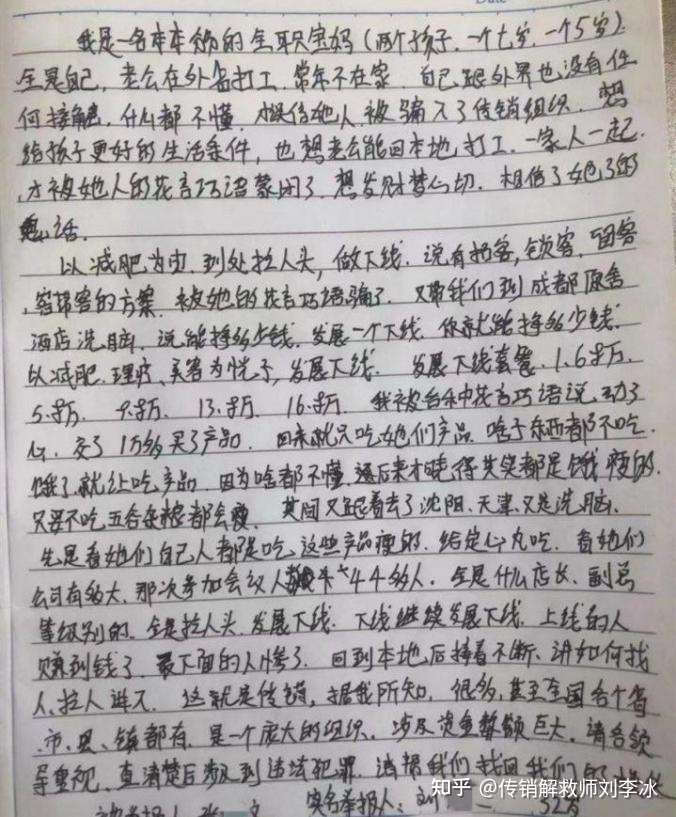 我是一名本本分的全职宝妈（两个孩子、一个七岁、一个5岁）
全是自己，老公在外省打工，常年不在家，自己跟外界也没有任
何接触，什么都不懂，相信她人被骗入了传销组织，想
给孩子更好的生活条件，也想老公能回本地打工，一家人一起，
才被她人的花言巧语蒙闭了，想发财梦心切，相信了她们的
话。
以减肥为由，到处拉人头，做下线，说有拓客，锁客，留客
，客带客的方案，被她的花言巧语骗了，又带我们到成都原舍
酒店洗脑，说能挣多少钱，发展一个下线，你就能挣多少钱。
以减肥、理疗、美容为幌子，发展下线，发展下线套餐，1.6万，
5万，9万，13万，16万，我被台种花言巧语说动了
心，交了1万多买了产品，回来就只吃她们产品，啥子东西都不吃
饿了就让吃产品，因为啥都不懂，过后来才晓得其实都是饿瘦的，
又要不吃五谷杂粮都会瘦，其间又跟着去了沈阳、天津又是洗脑，
先是看她们自己人都是吃这些产品瘦的，给定心丸吃，看她们
公司有多大，那次参加会议人44多人，全是什么店长、副总
等级别的，全是拉人头，发展下线，下线继续发展下线，上线的人
赚到钱了，最下面的人惨了，回到本地后接着不断，讲如何找
人，拉人进入，这就是传销，据我所知，很多，甚至全国各个省
、市、县、镇都有，是一个庞大的组织，涉及资金数额巨大，请各领
导重视，查清楚后涉及到违法犯罪，请帮我们找回我们的
举报人 实名举报人：刘 一
知乎 @传销解救师刘李冰